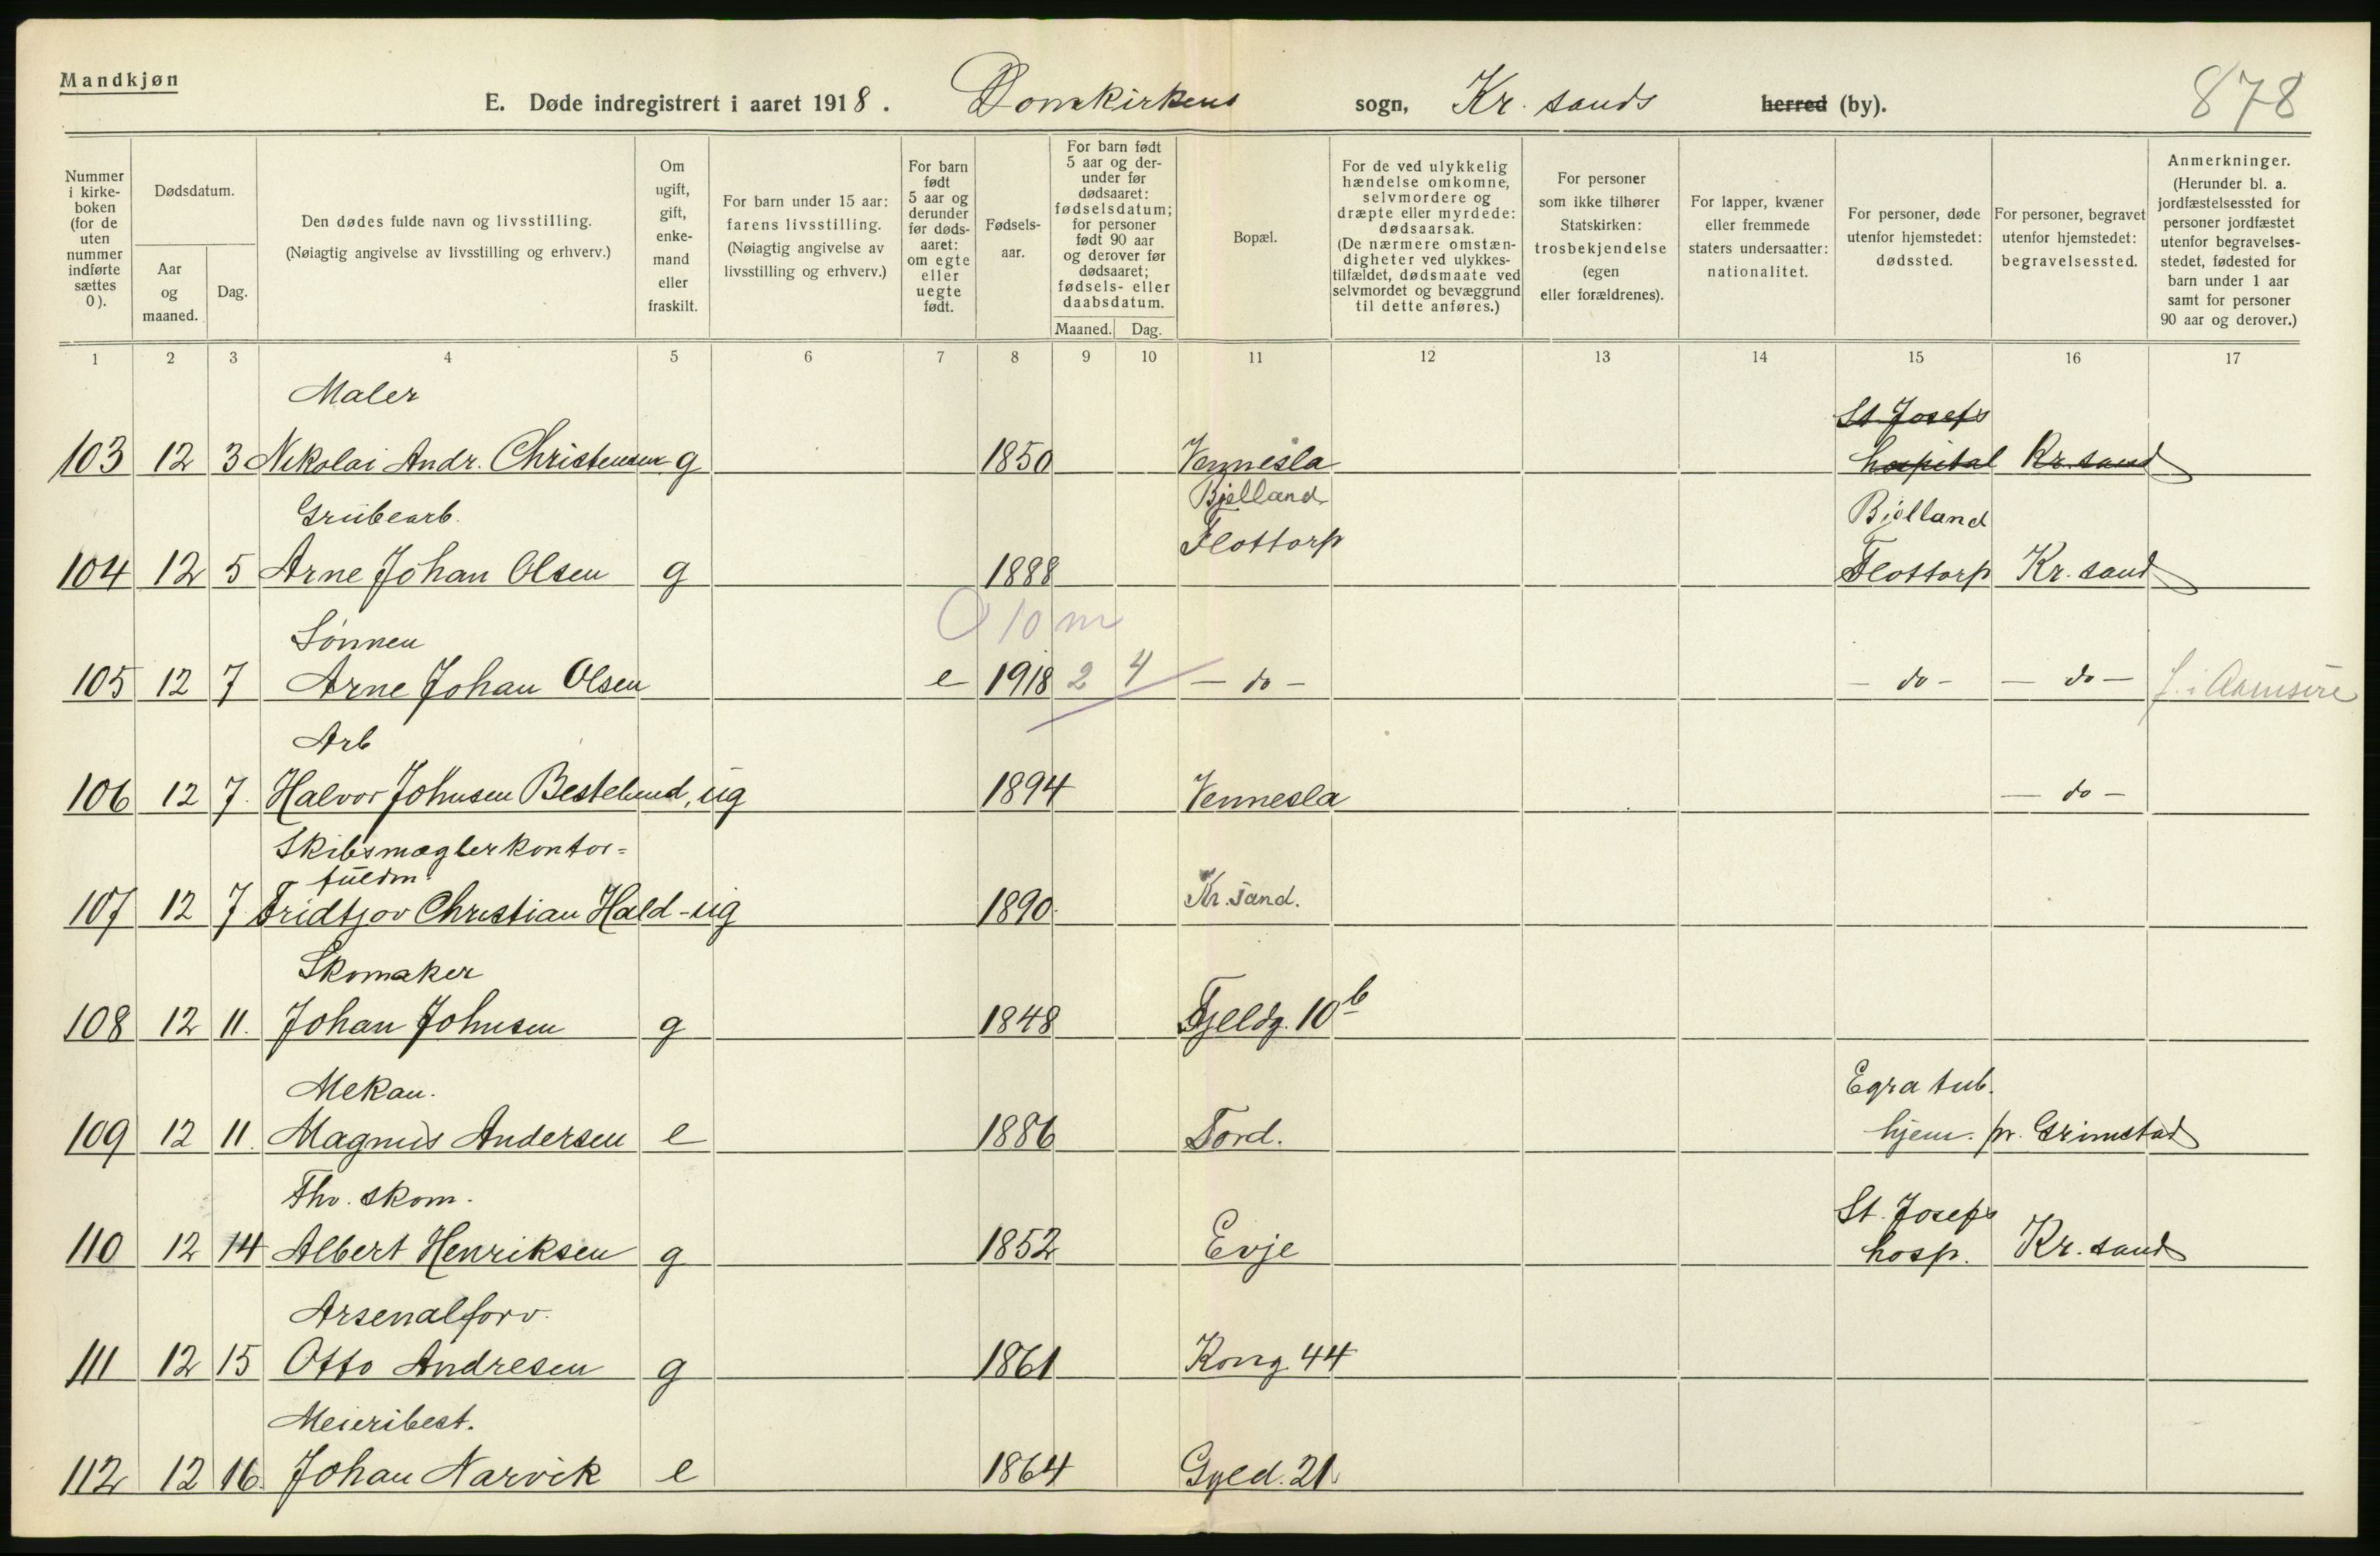 Mandkjøn
E. Døde indregistrert i aaret 1918. Domkirkens sogn, Kr. sands herred (by). 878
Nummer i kirke-boken (for de uten nummer indførte sættes 0).
Dødsdatum.
Aar og maaned.
Dag.
Den dødes fulde navn og livsstilling.
(Nøiagtig angivelse av livsstilling og erhverv.)
Om ugift, gift, enke-mand eller fraskilt.
For barn under 15 aar: farens livsstilling.
(Nøiagtig angivelse av livsstilling og erhverv.)
For barn født 5 aar og derunder før døds-aaret: om egte eller uegte født.
Fødsels-aar.
For barn født 5 aar og der-under før dødsaaret: fødselsdatum; for personer født 90 aar og derover før dødsaaret; fødsels- eller daabsdatum.
Maaned. Dag.
Bopæl.
For de ved ulykkelig hændelse omkomne, selvmordere og dræpte eller myrdede: dødsaarsak.
(De nærmere omstæn-digheter ved ulykkes-tilfældet, dødsmaate ved selvmordet og bevæggrund til dette anføres.)
For personer som ikke tilhører Statskirken: trosbekjendelse (egen eller forældrenes).
For lapper, kvæner eller fremmede staters undersaatter: nationalitet.
For personer, døde utenfor hjemstedet: dødssted.
For personer, begravet utenfor hjemstedet: begravelsessted.
Anmerkninger.
(Herunder bl. a. jordfæstelsessted for personer jordfæstet utenfor begravelses-stedet, fødested for barn under 1 aar samt for personer 90 aar og derover.)
1 2 3 4 5 6 7 8 9 10 11 12 13 14 15 16 17
Maler St. Josefs
103 12 3 Nikolai Andr. Christensen g 1850 Vennesla hospital Kr. sand
Grübearb. Bjelland Bjelland
104 12 5 Arne Johan Olsen g 1888 Flottorp Flottorp Kr. sand
Sønnen 0 10 m
105 12 7 Arne Johan Olsen e 1918 2 4 - do - - do - - do - f. i
Arb
106 12 7. Halvor Johnsen ug 1894 Vennesla - do -
Skibsmæglerkontor=
fuldm.
107 12 7 Fridtjov Christian Hald - ug 1890. Kr. sand.
Skomaker
108 12 11. Johan Johnsen g 1848 Fjeldg. 10b
Mekan. Egra tub.
109 12 11. Magnus Andersen e 1886 Tord. hjem. pr. Grimstad
Fhv. skom. St. Josefs
110 12 14 Albert Henriksen g 1852 Evje hosp. Kr. sand
Arsenalforv.
111 12 15 Otto Andresen g 1861 Kong. 44
Meieribest.
112 12 16. Johan Narvik e 1864 Gyld. 21.